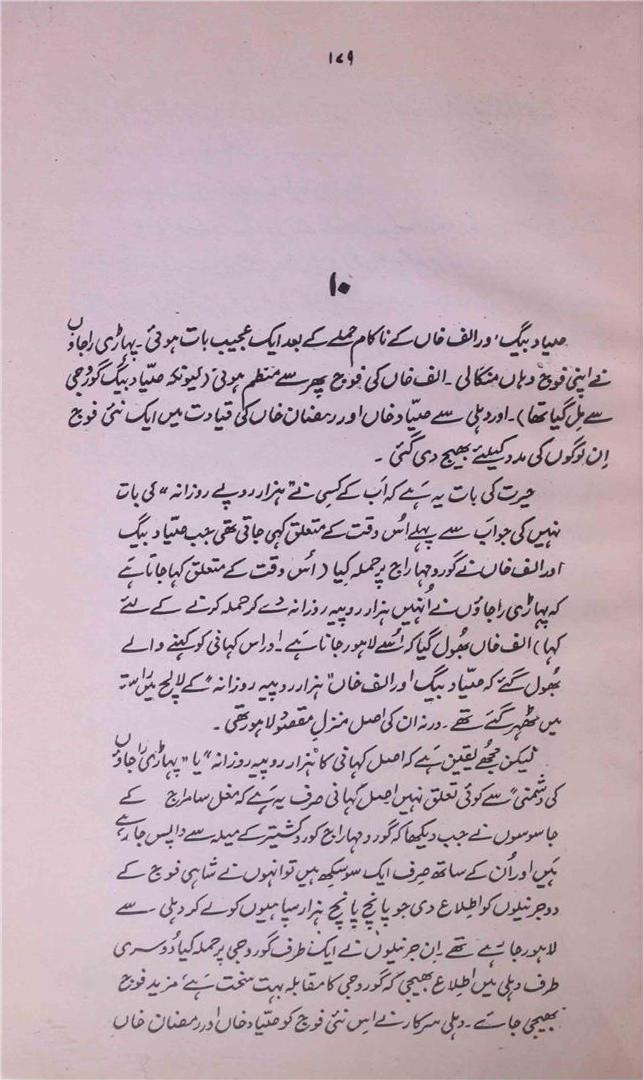 ۱۷۹
۱۰
صیّاد بیگ اور الف خاں کے ناکام حملے کے بعد ایک عجیب بات ہوئی۔ پہاڑی راجاؤں
نے اپنی فوج وہاں منگالی۔ الف خاں کی فوج پھر سے منظم ہوئی (کیونکہ صیّاد بیگ گوروجی
سے مِل گیا تھا)۔ اور دہلی سے صیّاد خاں اور رمضان خاں کی قیادت میں ایک نئی فوج
اِن لوگوں کی مدد کیلئے بھیج دی گئی۔
حیرت کی بات یہ ہے کہ اَب کے کسی نے "ہزار روپے روزانہ" کی بات
نہیں کی جو اَب سے پہلے اُس وقت کے متعلق کہی جاتی تھی جب صیّاد بیگ
اور الف خاں نے گورو مہاراج پر حملہ کیا (اُس وقت کے متعلق کہا جاتا ہے
کہ پہاڑی راجاؤں نے اُنہیں ہزار روپیہ روزانہ دے کر حملہ کرنے کے لئے
کہا) الف خاں بھُول گیا کہ اُسے لاہور جانا ہے۔ اور اس کہانی کو کہنے والے
بھُول گئے کہ صیّاد بیگ اور الف خاں "ہزار روپیہ روزانہ" کے لالچ میں راستہ
میں ٹھہر گئے تھے۔ ورنہ ان کی اصل منزلِ مقصُود لاہور تھی۔
لیکن مجھے یقین ہے کہ اصل کہانی کا "ہزار روپیہ روزانہ" یا "پہاڑی راجاؤں
کی دشمنی" سے کوئی تعلق نہیں اصل کہانی صرف یہ ہے کہ مغل سامراج کے
جاسوسوں نے جب دیکھا کہ گورو مہاراج کوروکشیتر کے میلہ سے واپس جا رہے
ہیں اور اُن کے ساتھ صِرف ایک سو سکھ ہیں تو انہوں نے شاہی فوج کے
دو جرنیلوں کو اطلاع دی جو پانچ پانچ ہزار سپاہیوں کو لے کر دہلی سے
لاہور جا رہے تھے۔ اِن جرنیلوں نے ایک طرف گوروجی پر حملہ کیا دُوسری
طرف دہلی میں اطلاع بھیجی کہ گوروجی کا مقابلہ بہت سخت ہے، مزید فوج
بھیجی جائے۔ دہلی سرکار نے اِس نئی فوج کو صیّاد خاں اور رمضان خاں